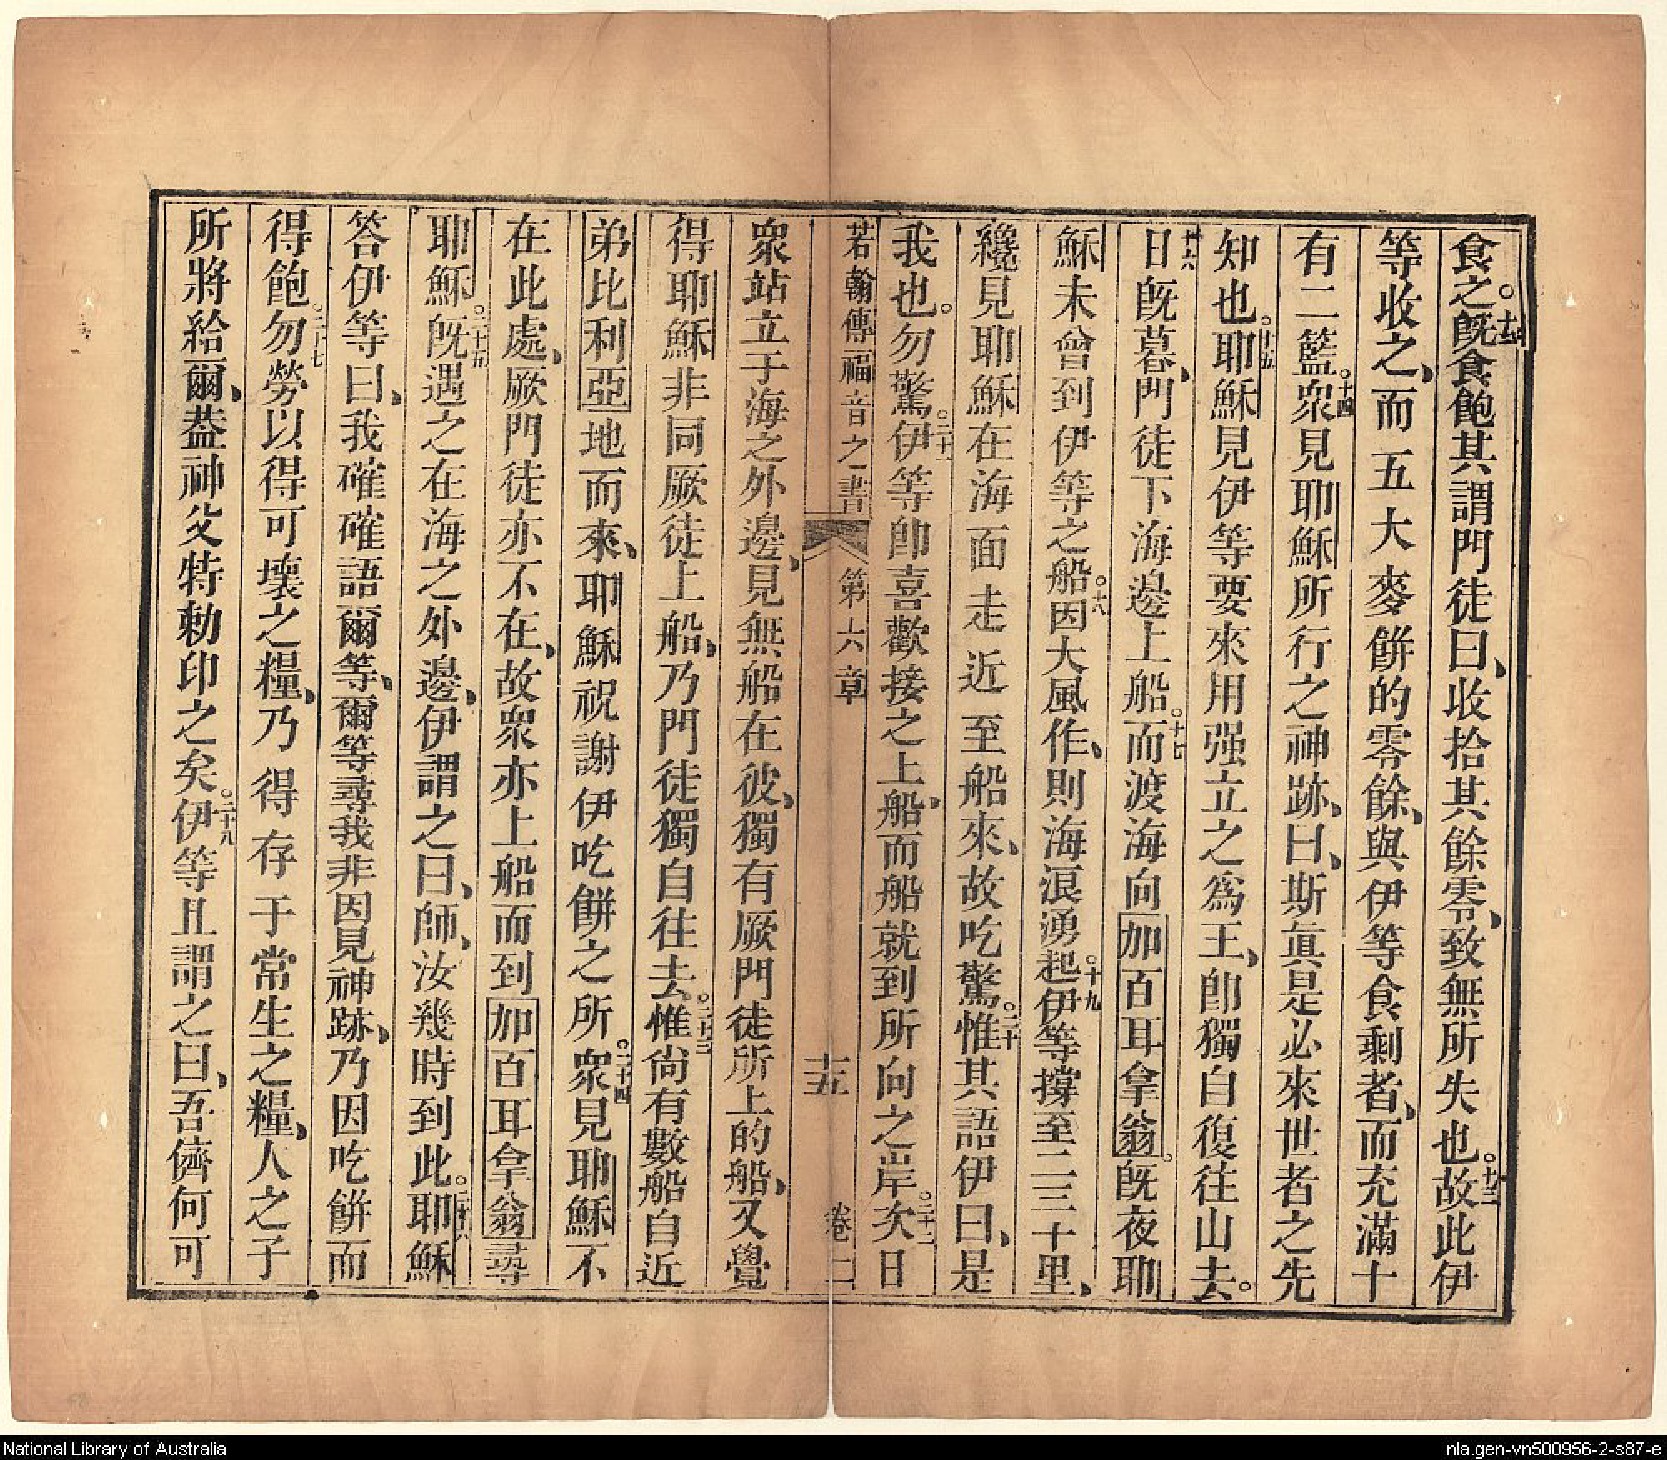 食之。十二既食飽其謂門徒曰、收拾其餘零、致無所失也。十三故此伊
等收之、而五大麥餅的零餘、與伊等食剩者、而充滿十
有二籃。十四衆見耶穌所行之神跡、曰、斯眞是必來世者之先
知也。十五耶穌見伊等要來用强立之為王、卽獨自復往山去。
十六日旣暮、門徒下海邊上船。十七而渡海向加百耳拿翁。旣夜耶
穌未曾到伊等之船。十八因大風作、則海浪湧起。十九伊等撐至二三十里、
纔見耶穌在海面走近至船來、故吃驚。二十惟其語伊曰、是
我也。勿驚。二十一伊等卽喜歡接之上船、而船就到所向之岸。二十二次日
若翰傳福音之書 第六章 十五 卷二
衆站立于海之外邊、見無船在彼、獨有厥門徒所上的船、又覺
得耶穌非同厥徒上船、乃門徒獨自往去。二十三惟尙有數船自近
弟比利亞地而來、耶穌祝謝伊吃餅之所。二十四衆見耶穌不
在此處、厥門徒亦不在、故衆亦上船而到加百耳拿翁尋
耶穌。二十五旣遇之在海之外邊、伊謂之曰、師、汝幾時到此。二十六耶穌
答伊等曰、我確確語爾等、爾等尋我非因見神跡、乃因吃餅而
得飽。二十七勿勞以得可壞之糧、乃得存于常生之糧、人之子
所將給爾、葢神父特勅印之矣。二十八伊等且謂之曰、吾儕何可
National Library of Australia
nla.gen-vn500956-2-s87-e